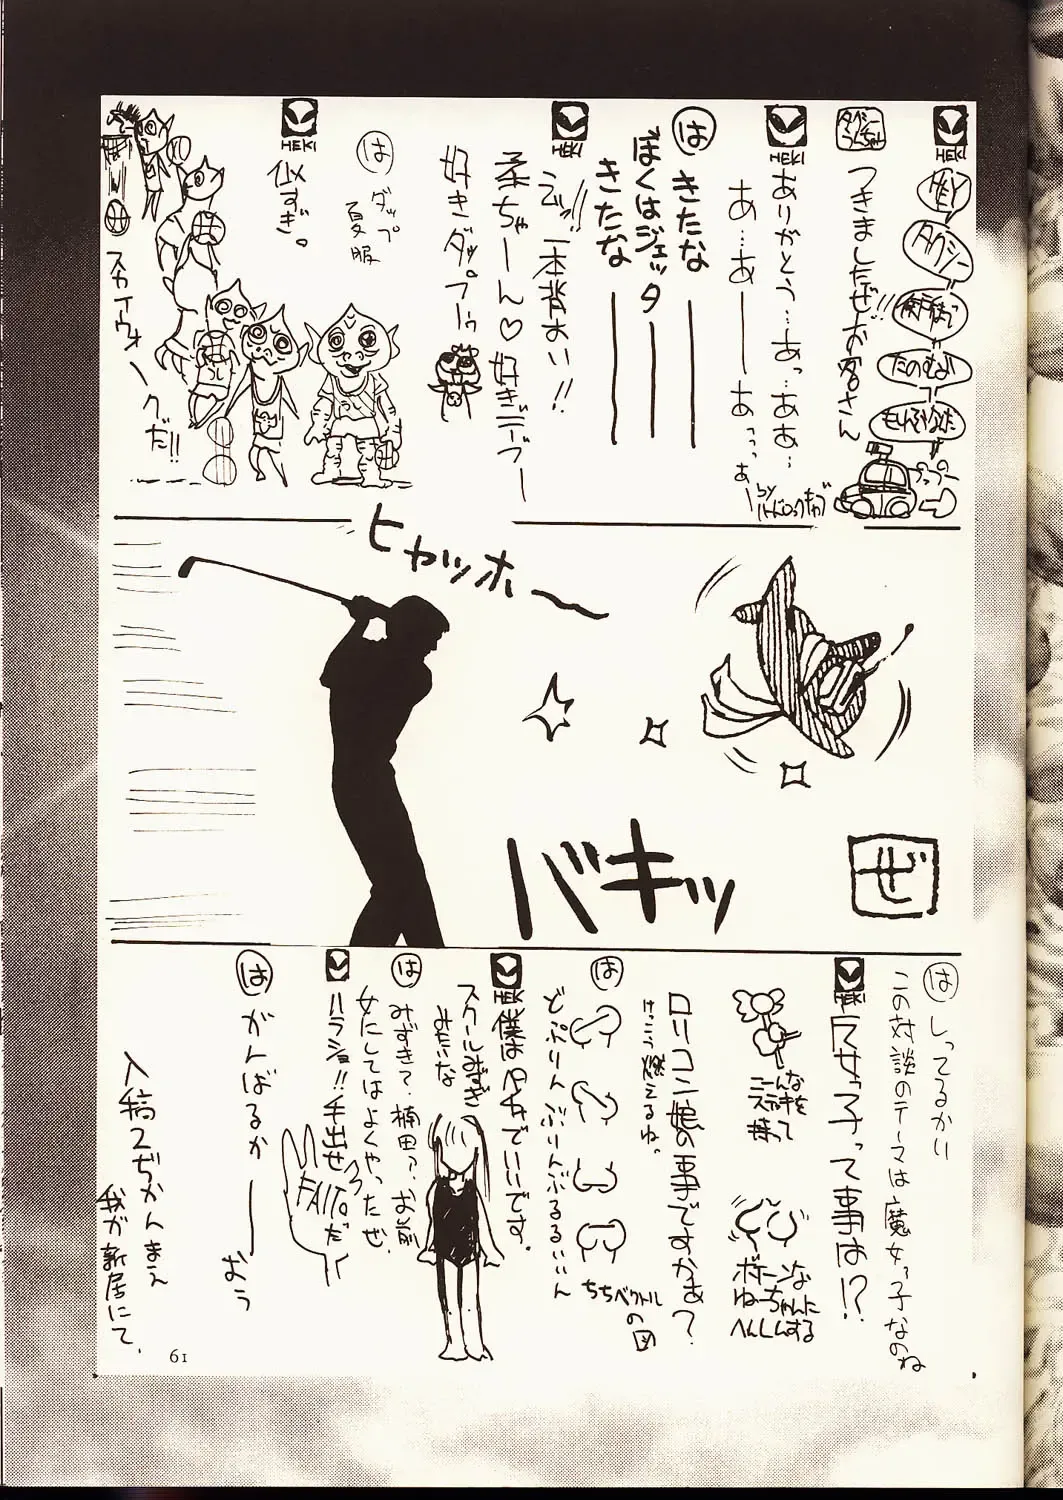 HEKI
HEY
タクシー
たのむよ
プップーの
つきましたぜお客さん!!
HEKI
ありがとう…あっ…ああ…
あ…あ——あっっっ
by ハードロックキャブ
は
きたな——
ぼくはジェッタ——
きたな——
HEKI
一本背おい!!
柔ちゃーん♡好きデプー
好きダップーゥ
は
ダップ
夏服
HEKI
似すぎ。
スカイウォークだ!!
ヒャッホー
バキッ
ぜ
は
しってるかい
この対談のテーマは魔女っ子なのね
HEKI
魔女っ子って事は!?
こんな
ステッキを
持って
ボイーンな
ねーちゃんに
へんしんする
ロリコン娘の事ですかあ?
けっこう燃えるね。
は
どぷりんぶりんぶるるぃん
ちちベクトル
の図
HEKI
僕はペチャでいいです。
スクールみずぎ
みたいな
は
みずき?楠田?お前
女にしてはよくやったぜ
HEKI
ハラショ!!手出せ
FAITOだ
は
がんばるか——
おう
入稿2ぢかんまえ
我が新居にて。
61